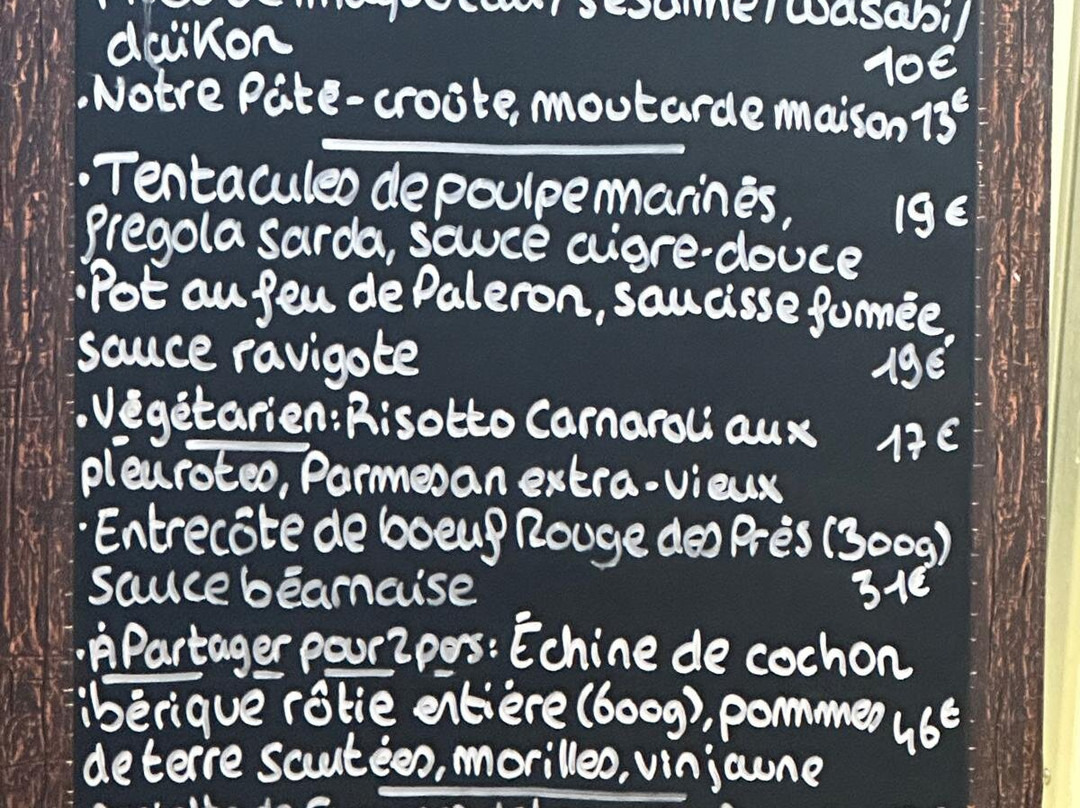 sésame/wasabi/
daïkon 10€
.Notre Pâté-croûte, moutarde maison 13€
.Tentacules de poulpe marinés, 19€
fregola sarda, sauce aigre-douce
.Pot au feu de Paleron, saucisse fumée,
sauce ravigote 19€
.Végétarien: Risotto Carnaroli aux 17€
pleurotes, Parmesan extra-vieux
.Entrecôte de boeuf Rouge des Prés (300g)
sauce béarnaise 31€
.À Partager pour 2 pers: Échine de cochon
ibérique rôtie entière (600g), pommes 46€
de terre sautées, morilles, vin jaune